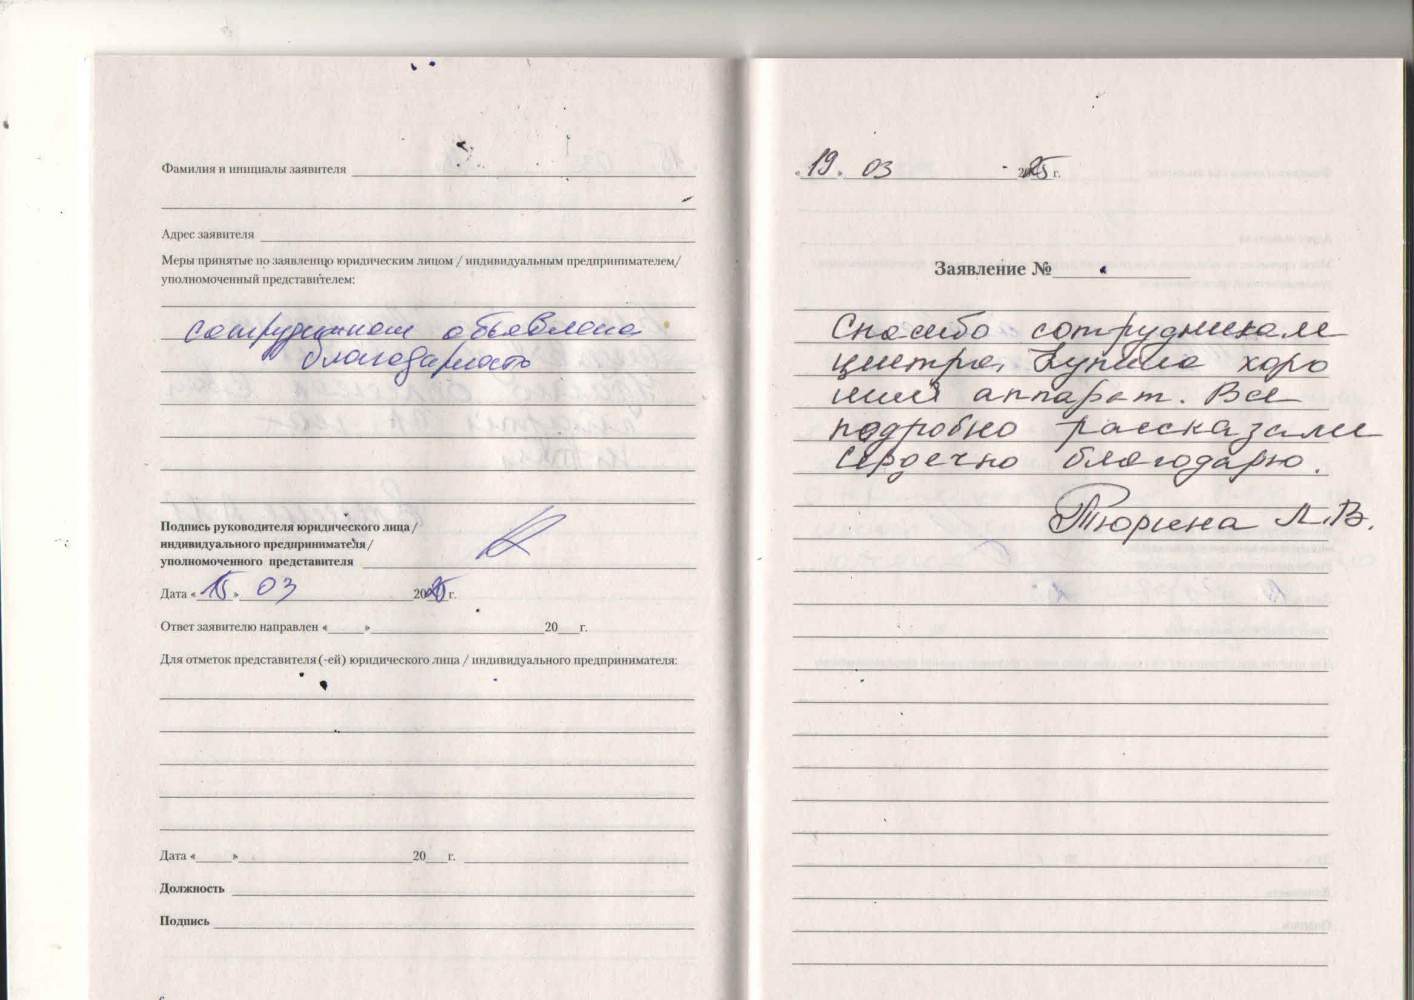 Фамилия и инициалы заявителя
Адрес заявителя
Меры принятые по заявлению юридическим лицом / индивидуальным предпринимателем/
уполномоченный представителем:
сотрудникам объявлена
благодарность
Подпись руководителя юридического лица/
индивидуального предпринимателя/
уполномоченного представителя
Дата «15» 03 2025 г.
Ответ заявителю направлен «» 20 г.
Для отметок представителя (-ей) юридического лица / индивидуального предпринимателя:
Дата «» 20 г.
Должность
Подпись
«19» 03 2025 г.
Заявление №
Спасибо сотрудникам
центра, Купила хоро
ший аппарат. Все
подробно рассказали
Сердечно благодарю.
Тюрина Л.В.